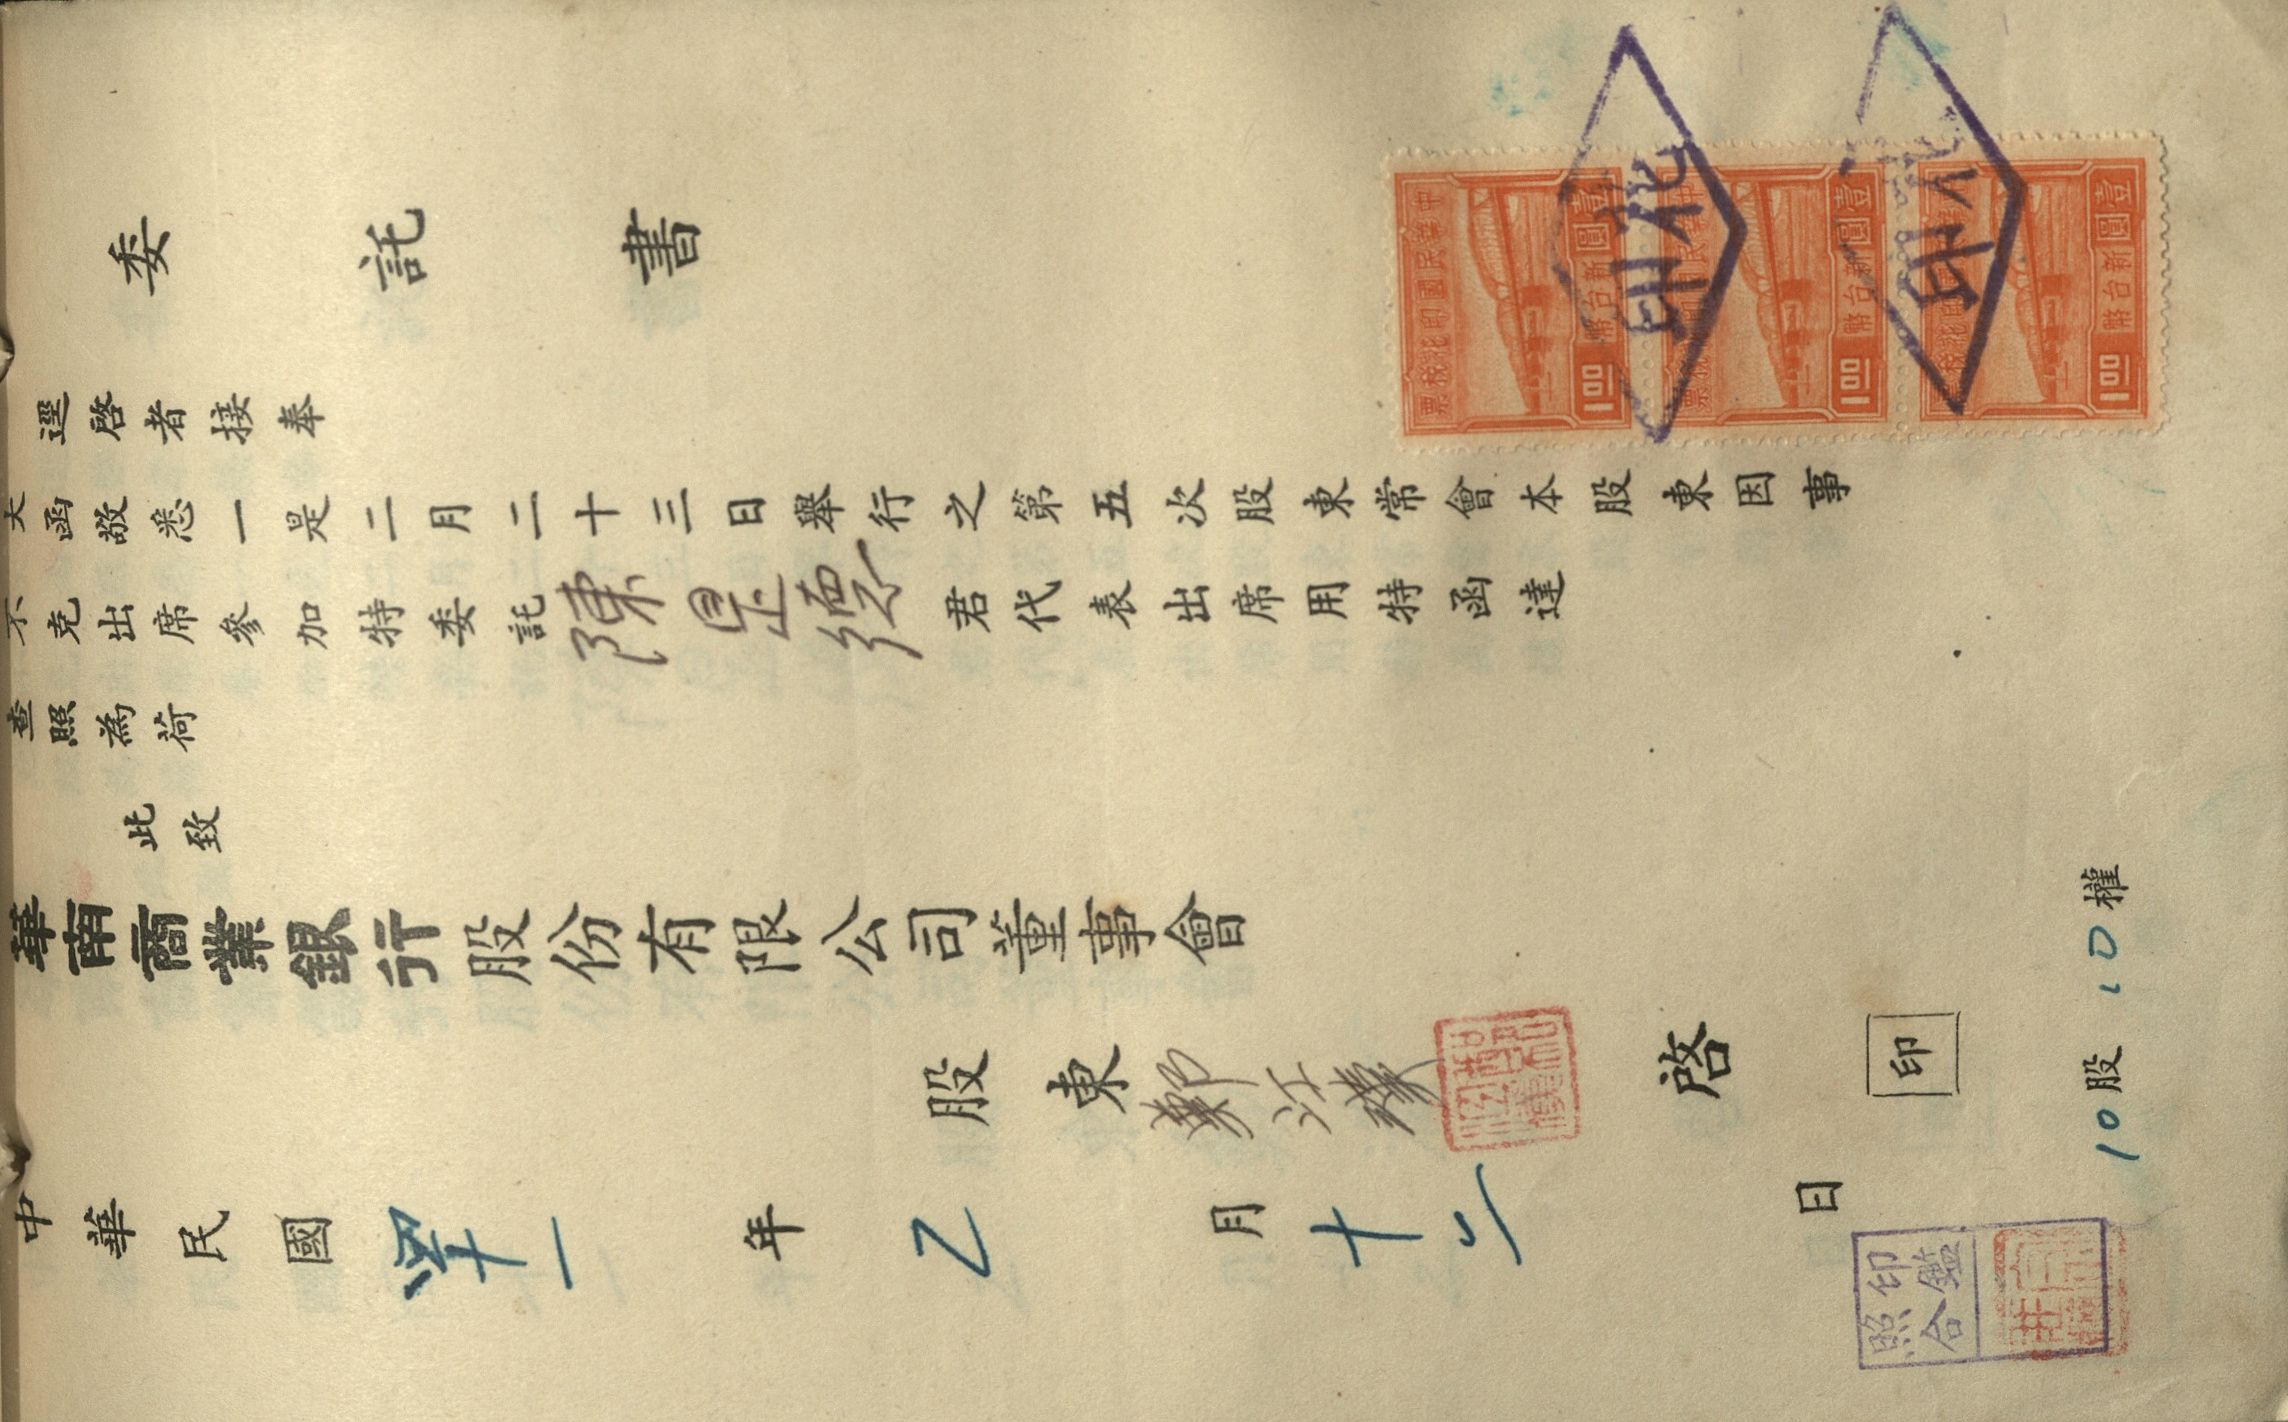 委託書
逕啓者接奉
大函敬悉一是二月二十三日舉行之第五次股東常會本股東因事
不克出席參加特委託陳是德君代表出席用特函達
查照為荷
此致
華南商業銀行股份有限公司董事會
股東鄭江 啓
印
10股 10權
中華民國四十一年乙月十二日
印鑑
照合
中華民國印花稅票
壹圓新台幣
1.00
中華民國印花稅票
壹圓新台幣
1.00
中華民國印花稅票
壹圓新台幣
1.00